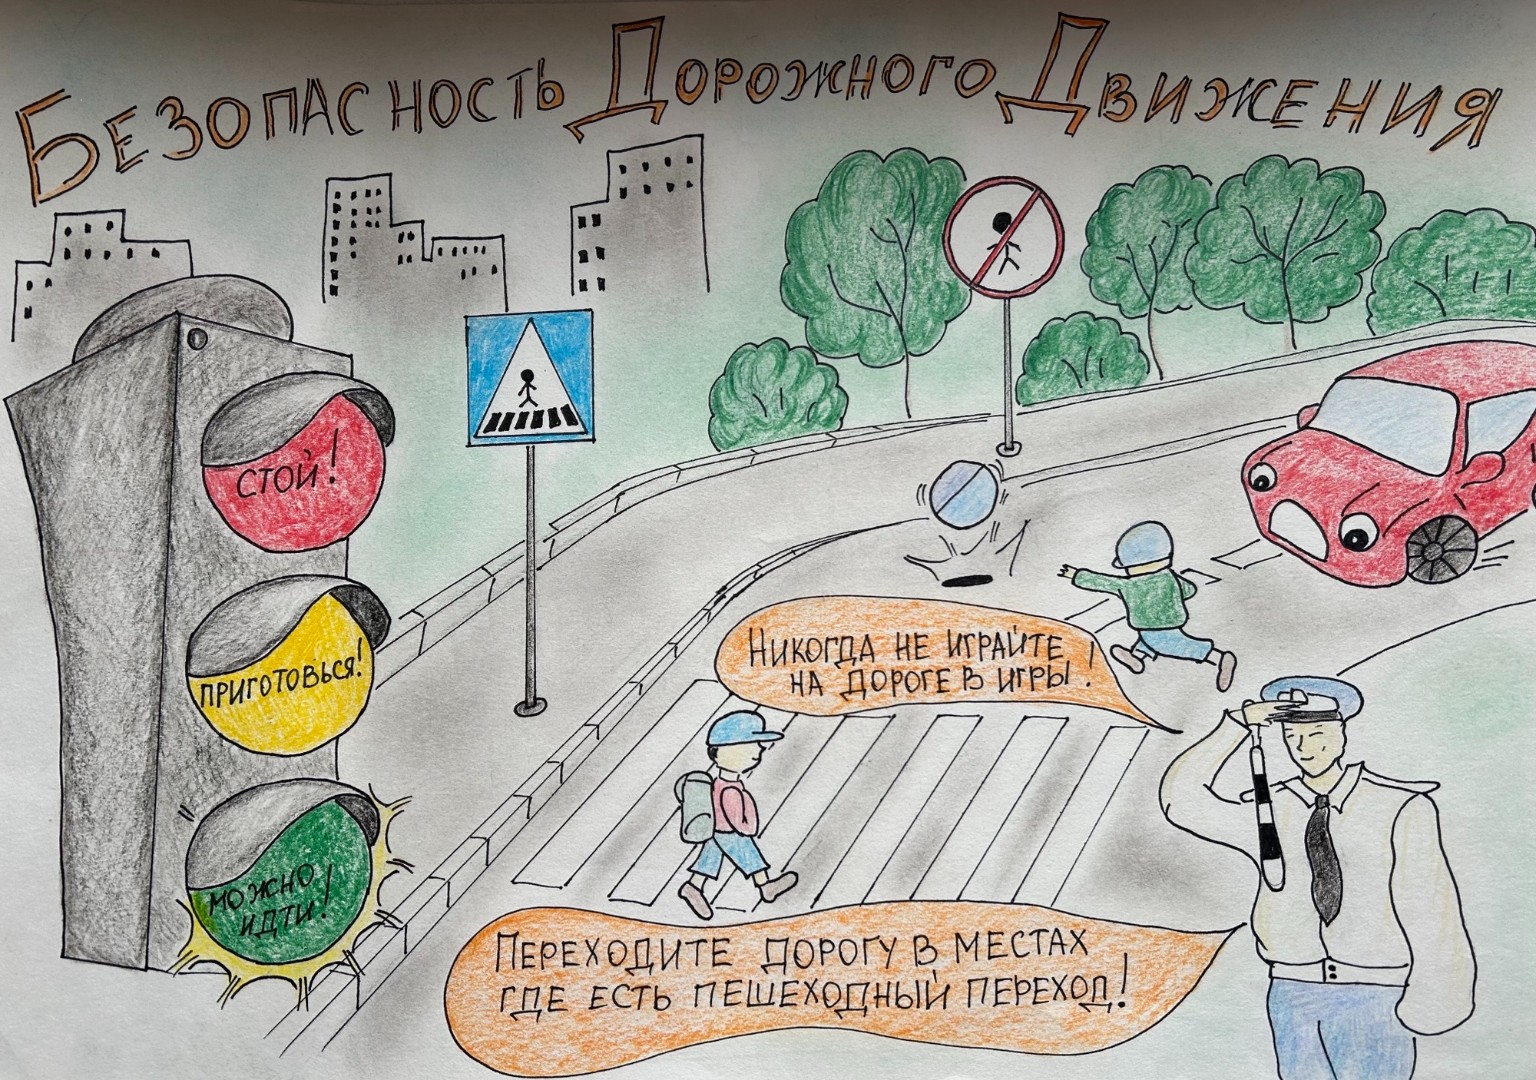 Безопасность Дорожного Движения
СТОЙ!
ПРИГОТОВЬСЯ!
МОЖНО
ИДТИ!
НИКОГДА НЕ ИГРАЙТЕ
НА ДОРОГЕ В ИГРЫ!
ПЕРЕХОДИТЕ ДОРОГУ В МЕСТАХ
ГДЕ ЕСТЬ ПЕШЕХОДНЫЙ ПЕРЕХОД!